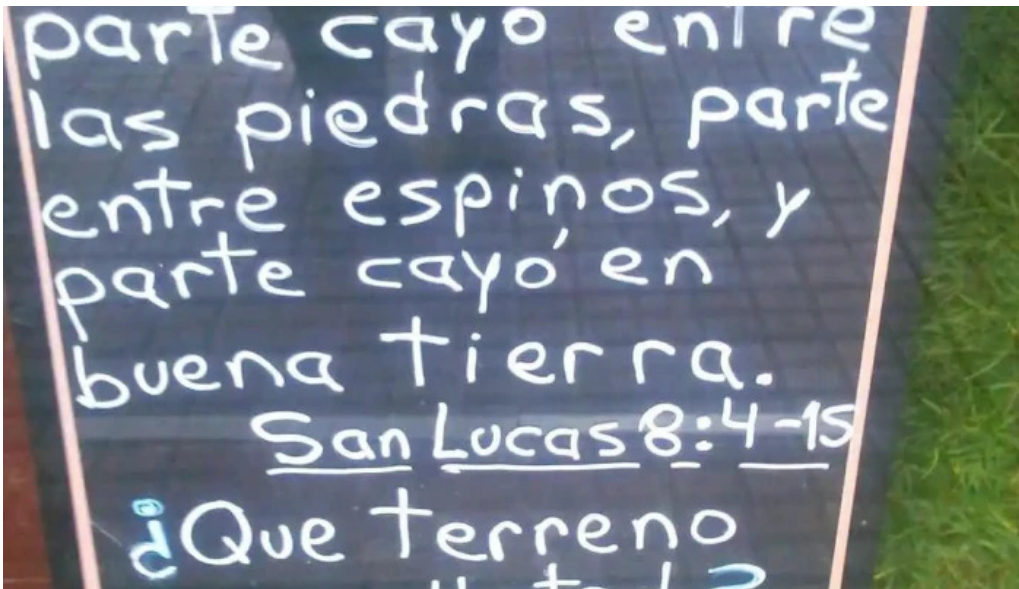 parte cayo entre
las piedras, parte
entre espinos, y
parte cayó en
buena tierra.
San Lucas 8:4-15
¿Que terreno